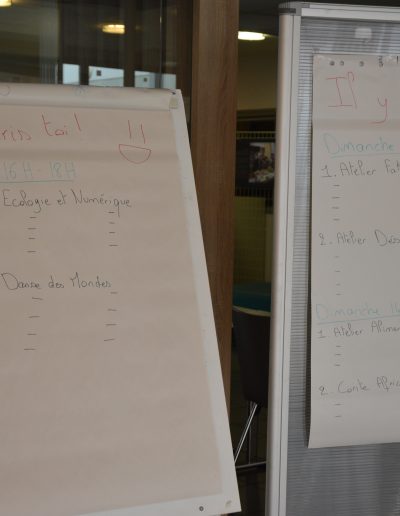 ris toi !
16H-18H
Ecologie et Numérique
Danse des Mondes
Il y
Dimanche
1. Atelier
2. Atelier
Dimanche
1. Atelier
2. Conte